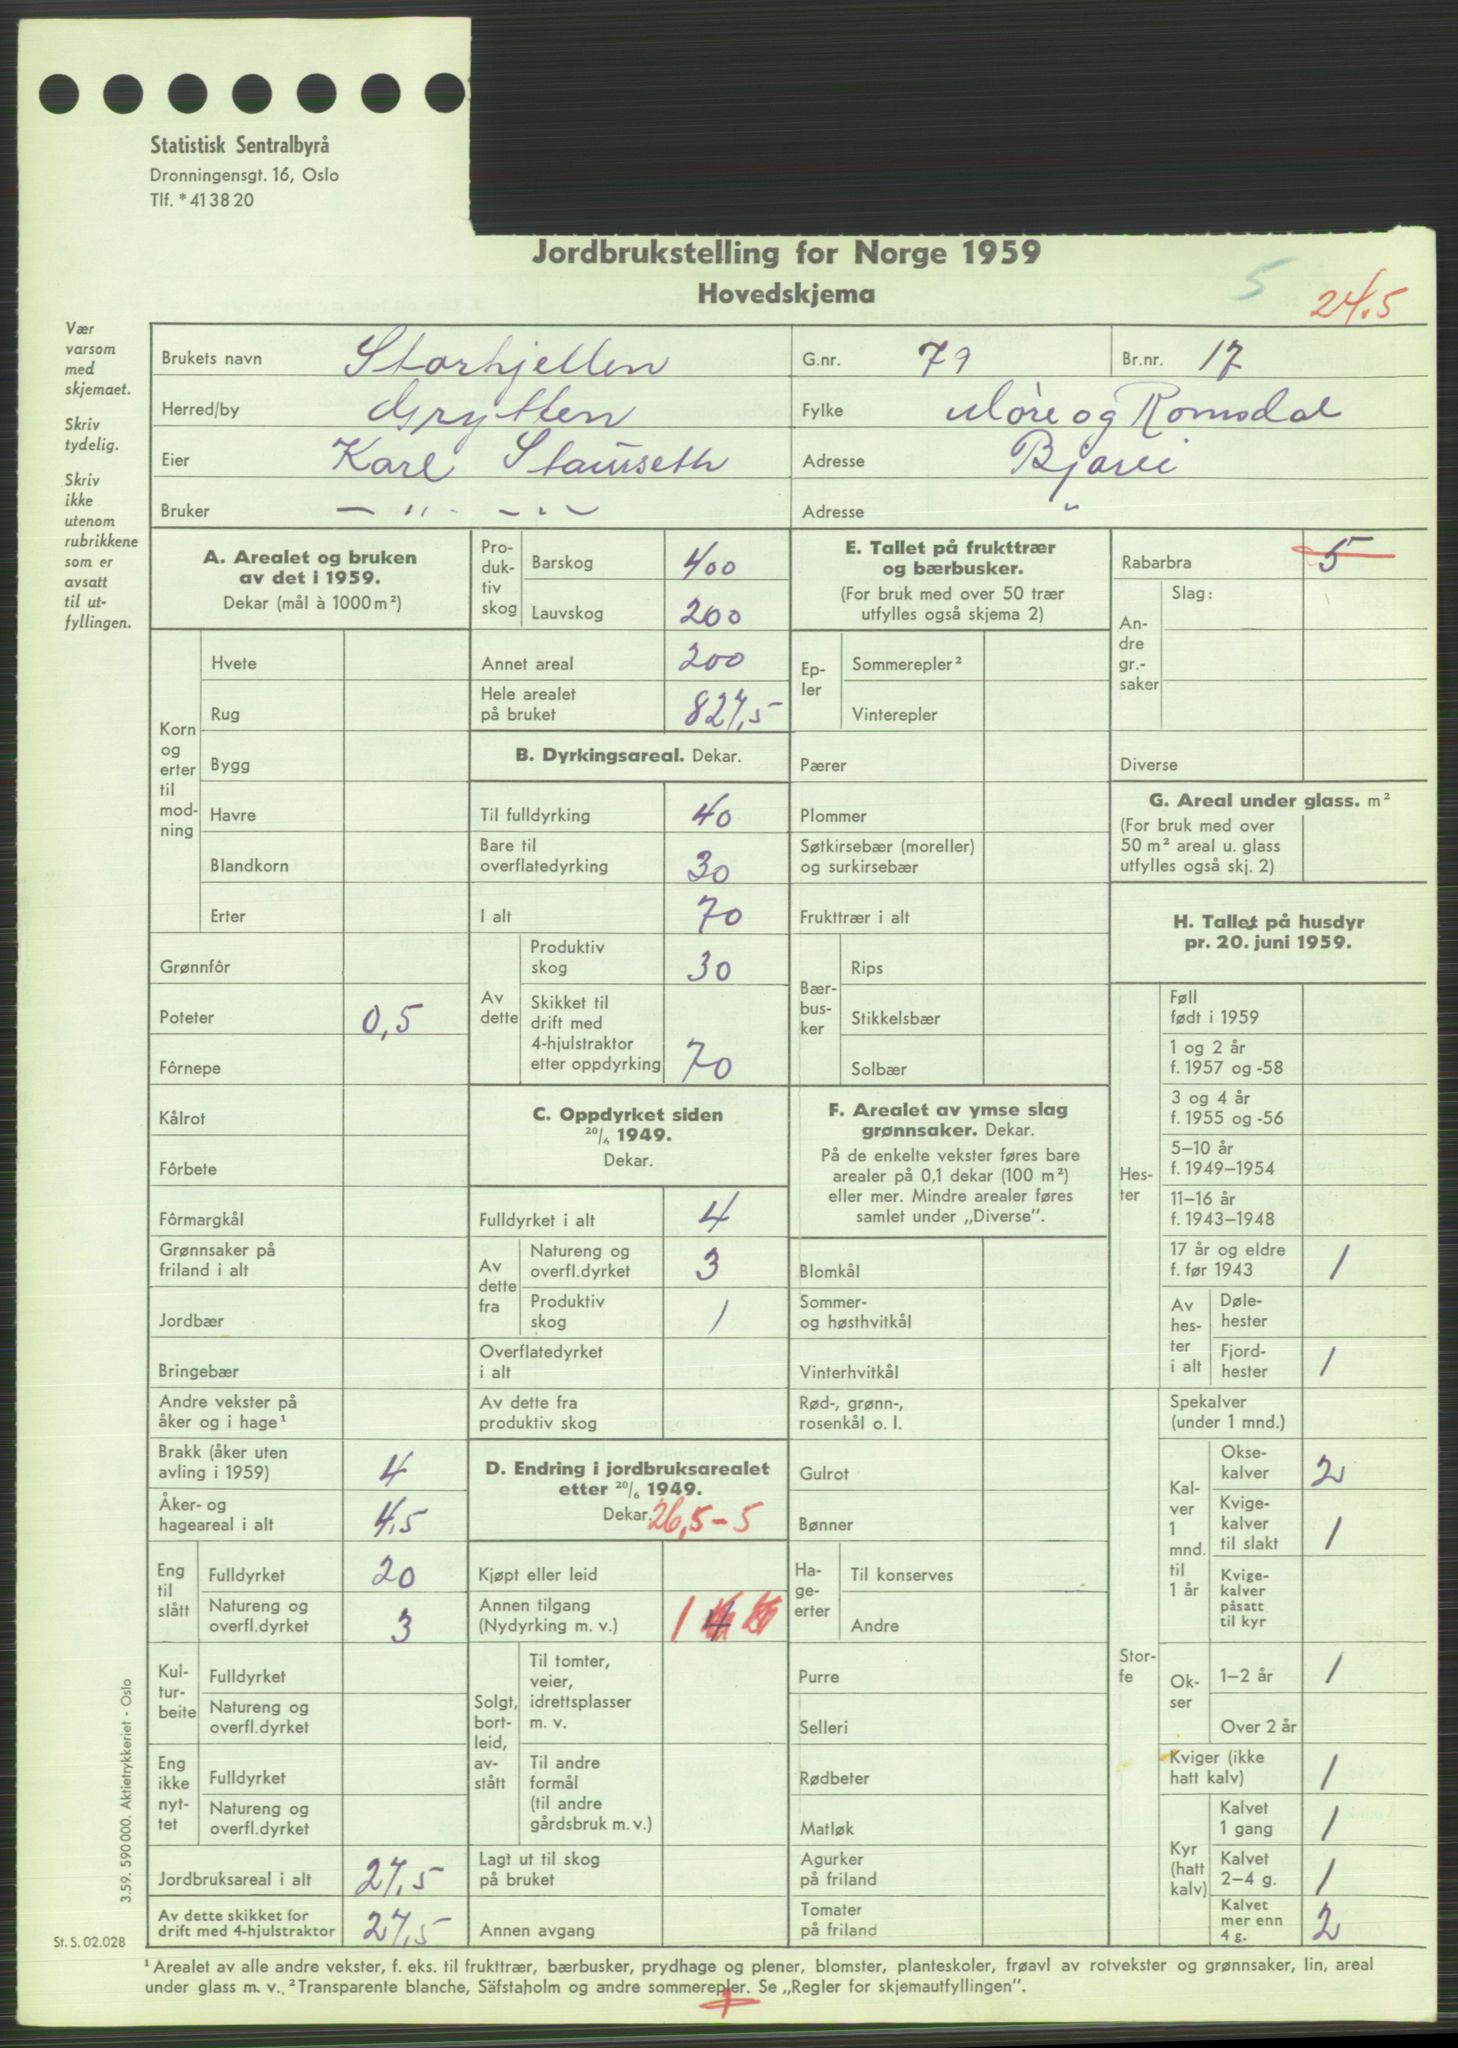 Statistisk Sentralbyrå
Dronningensgt. 16, Oslo
Tlf. * 41 38 20
Jordbrukstelling for Norge 1959
Hovedskjema
5
24.5
Vær
varsom
med
skjemaet.
Skriv
tydelig.
Skriv
ikke
utenom
rubrikkene
som er
avsatt
til ut-
fyllingen.
Brukets navn Storhjellen G.nr. 79 Br.nr. 17
Herred/by Grytten Fylke Møre og Romsdal
Eier Karl Adresse
Bruker — „ — — „ — Adresse „
A. Arealet og bruken
av det i 1959.
Dekar (mål à 1000 m²)
Korn
og
erter
til
mod-
ning
Hvete
Rug
Bygg
Havre
Blandkorn
Erter
Grønnfôr
Poteter 0,5
Fôrnepe
Kålrot
Fôrbete
Fôrmargkål
Grønnsaker på
friland i alt
Jordbær
Bringebær
Andre vekster på
åker og i hage¹
Brakk (åker uten
avling i 1959) 4
Åker- og
hageareal i alt 4,5
Eng
til
slått
Fulldyrket 20
Natureng og
overfl.dyrket 3
Kul-
tur-
beite
Fulldyrket
Natureng og
overfl.dyrket
Eng
ikke
nyt-
tet
Fulldyrket
Natureng og
overfl.dyrket
Jordbruksareal i alt 27,5
Av dette skikket for
drift med 4-hjulstraktor 27,5
Pro-
duk-
tiv
skog
Barskog 400
Lauvskog 200
Annet areal 200
Hele arealet
på bruket 827,5
B. Dyrkingsareal. Dekar.
Til fulldyrking 40
Bare til
overflatedyrking 30
I alt 70
Av
dette
Produktiv
skog 30
Skikket til
drift med
4-hjulstraktor
etter oppdyrking 70
C. Oppdyrket siden
20/6 1949.
Dekar.
Fulldyrket i alt 4
Av
dette
fra
Natureng og
overfl.dyrket 3
Produktiv
skog 1
Overflatedyrket
i alt
Av dette fra
produktiv skog
D. Endring i jordbruksarealet
etter 20/6 1949.
Dekar. 26,5 – 5
Kjøpt eller leid
Annen tilgang
(Nydyrking m. v.) 1 4
Solgt,
bort-
leid,
av-
stått
Til tomter,
veier,
idrettsplasser
m. v.
Til andre
formål
(til andre
gårdsbruk m. v.)
Lagt ut til skog
på bruket
Annen avgang
E. Tallet på frukttrær
og bærbusker.
(For bruk med over 50 trær
utfylles også skjema 2)
Ep-
ler
Sommerepler²
Vinterepler
Pærer
Plommer
Søtkirsebær (moreller)
og surkirsebær
Frukttrær i alt
Bær-
bus-
ker
Rips
Stikkelsbær
Solbær
F. Arealet av ymse slag
grønnsaker. Dekar.
På de enkelte vekster føres bare
arealer på 0,1 dekar (100 m²)
eller mer. Mindre arealer føres
samlet under „Diverse”.
Blomkål
Sommer-
og høsthvitkål
Vinterhvitkål
Rød-, grønn-,
rosenkål o. l.
Gulrot
Bønner
Ha-
ge-
erter
Til konserves
Andre
Purre
Selleri
Rødbeter
Matløk
Agurker
på friland
Tomater
på friland
Rabarbra 5
An-
dre
gr.-
saker
Slag:
Diverse
G. Areal under glass. m²
(For bruk med over
50 m² areal u. glass
utfylles også skj. 2)
H. Tallet på husdyr
pr. 20. juni 1959.
Hes-
ter
Føll
født i 1959
1 og 2 år
f. 1957 og -58
3 og 4 år
f. 1955 og -56
5–10 år
f. 1949–1954
11–16 år
f. 1943–1948
17 år og eldre
f. før 1943 1
Av
hes-
ter
i alt
Døle-
hester
Fjord-
hester 1
Stor-
fe
Spekalver
(under 1 mnd.)
Kal-
ver
1
mnd.
til
1 år
Okse-
kalver 2
Kvige-
kalver
til slakt 1
Kvige-
kalver
påsatt
til kyr
Ok-
ser
1–2 år 1
Over 2 år
Kviger (ikke
hatt kalv) 1
Kyr
(hatt
kalv)
Kalvet
1 gang 1
Kalvet
2–4 g. 1
Kalvet
mer enn
4 g. 2
3.59. 590 000. Aktietrykkeriet - Oslo
St. S. 02.028
¹ Arealet av alle andre vekster, f. eks. til frukttrær, bærbusker, prydhage og plener, blomster, planteskoler, frøavl av rotvekster og grønnsaker, lin, areal
under glass m. v. ² Transparente blanche, Säfstaholm og andre sommerepler. Se „Regler for skjemautfyllingen”.